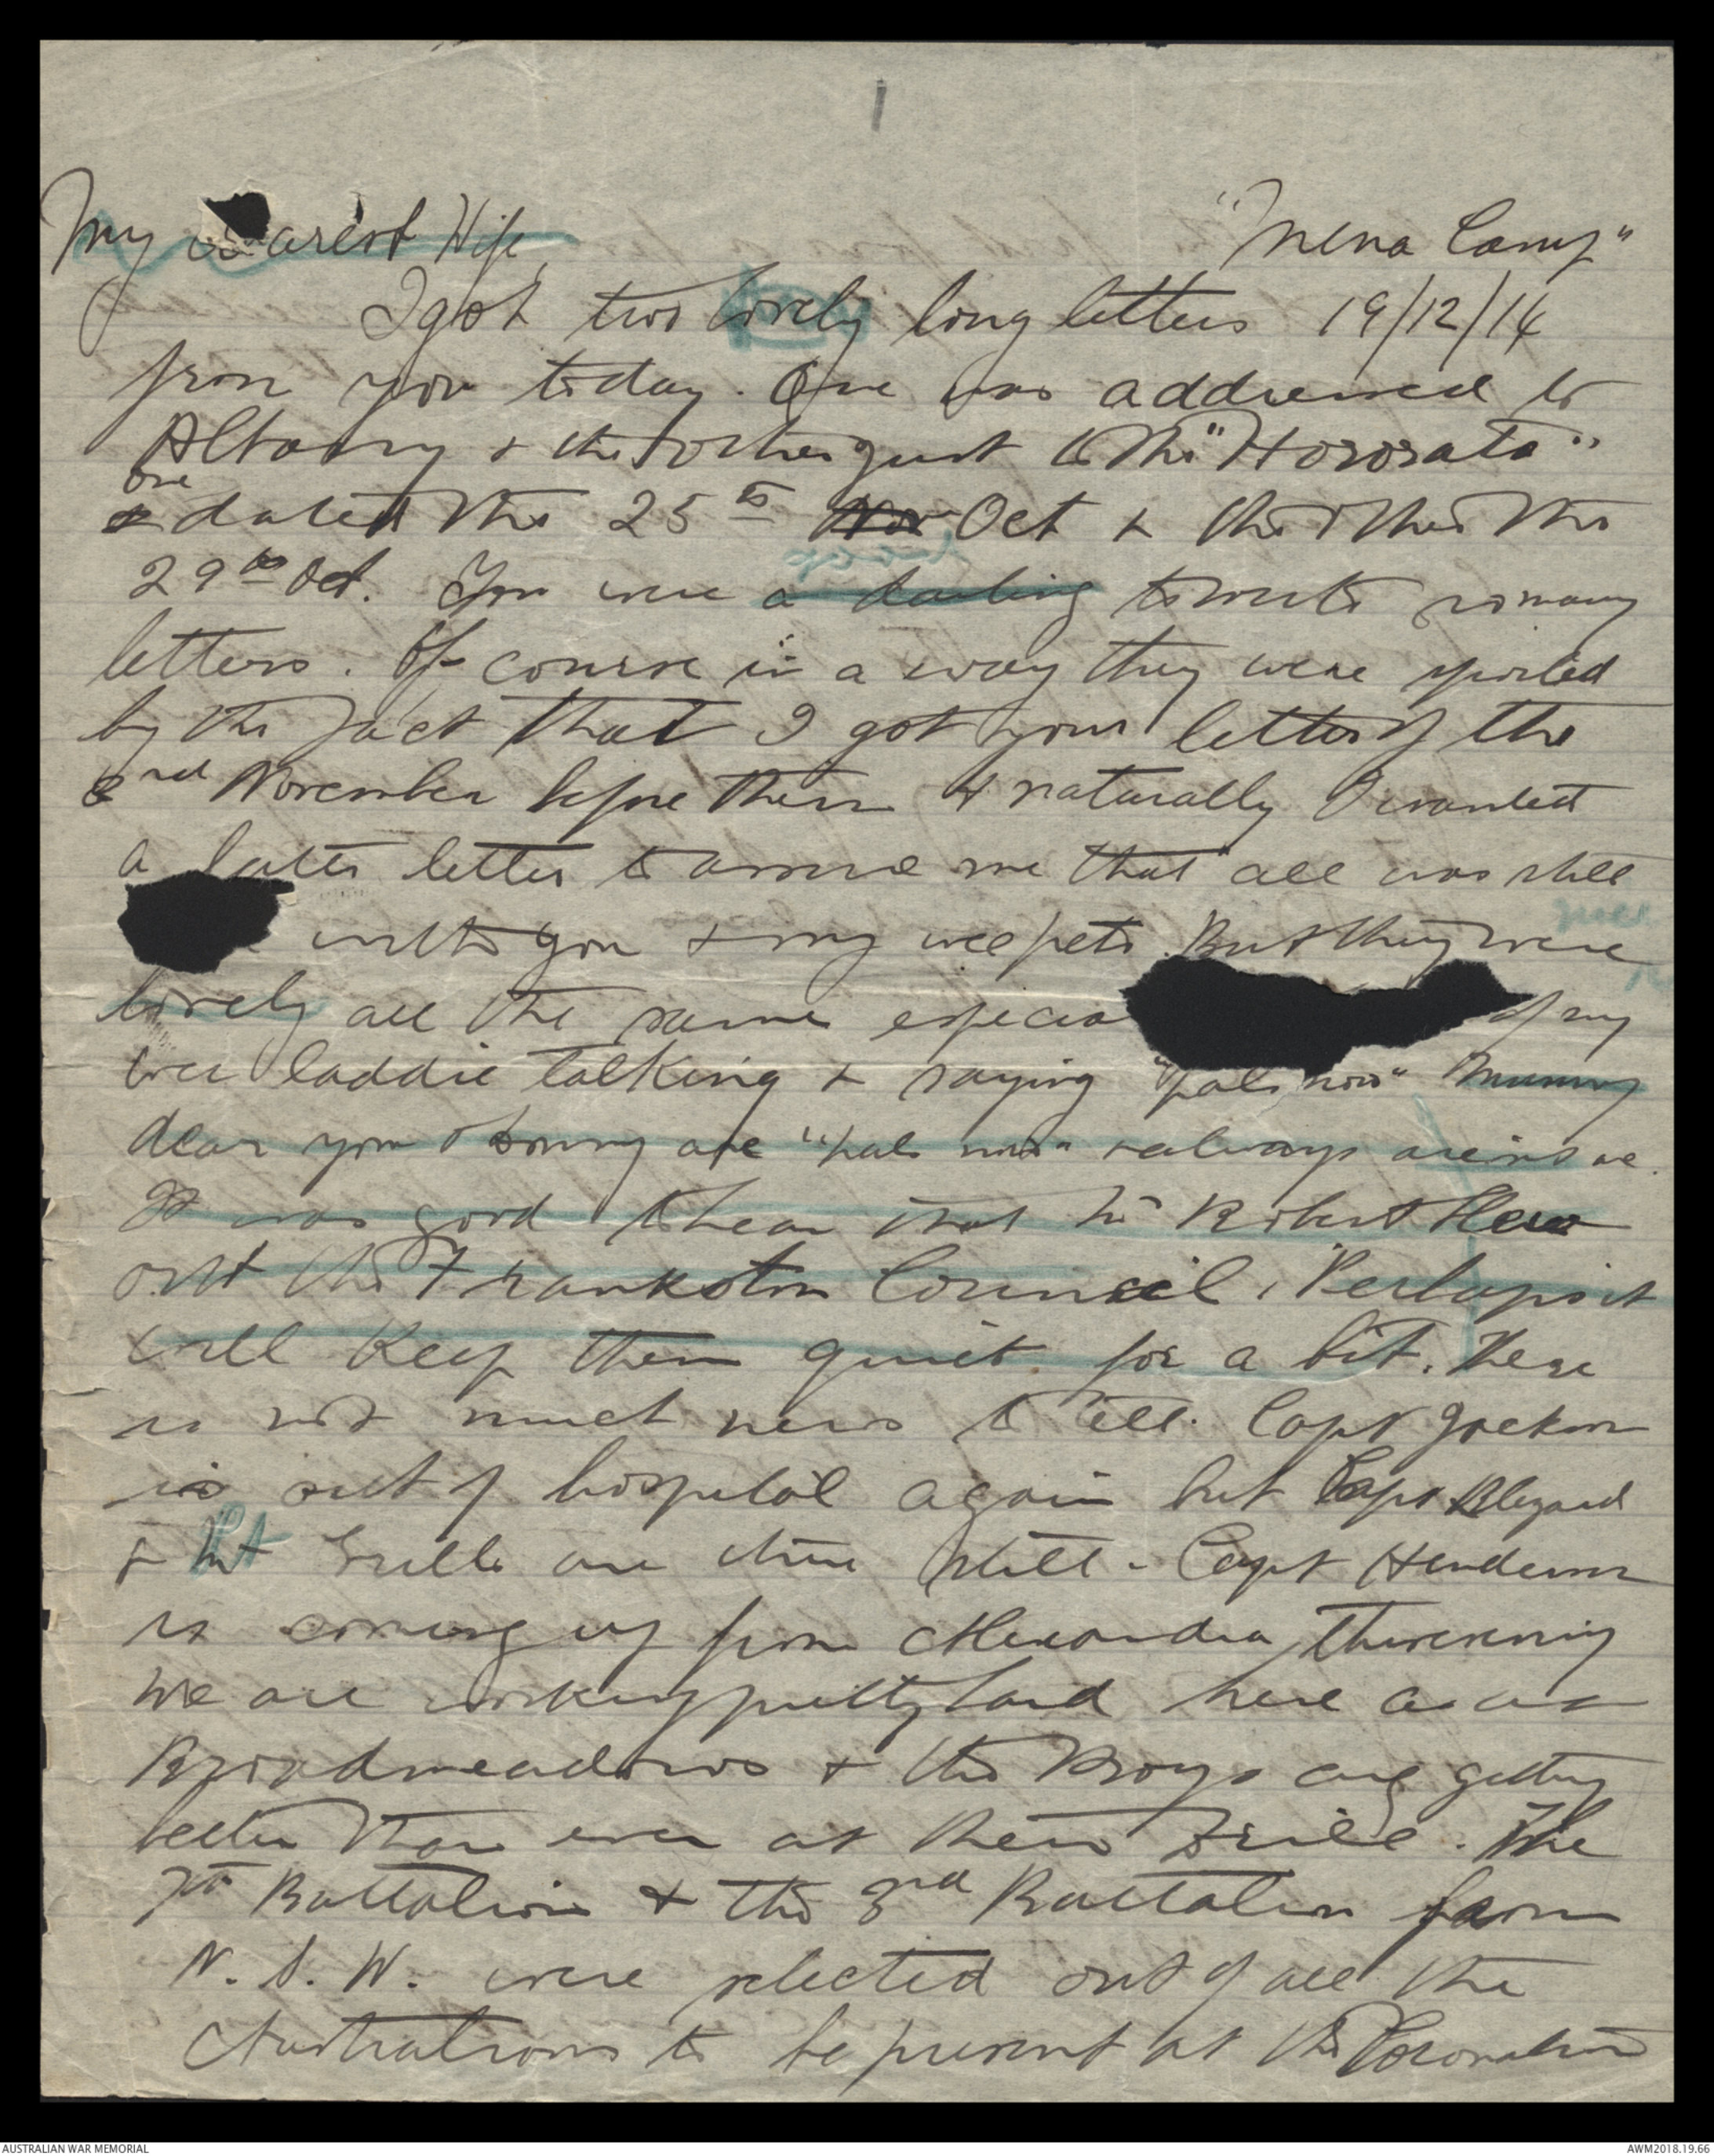 1
My dearest Wife "Mena Camp"
I got two lovely long letters 19/12/14
from you today. One was addressed to
Albany & the other just to the "Hororata"
one dated the 25th Nov Oct & the other the
29th Oct. You were a darling to write so many
letters. Of course in a way they were spoiled
by the fact that I got your letter of the
2nd November before them & naturally I wanted
a later letter to assure me that all was still
with you & my wee pets. But they were
lovely all the same especia of my
wee laddie talking & saying "pals now" Mummy
dear you & Sonny are "pals now" & always
It was good to hear that Sir Robert
out the Frankston Council. Perhaps it
will keep them quiet for a bit. There
is not much news to tell. Capt Jackson
is out of hospital again but Capt Blezard
& Lt Grills are there still - Capt Henderson
is coming up from Alexandria this evening
We are working pretty hard here as at
Broadmeadows & the Boys are getting
better than ever at their drill. The
7th Battalion & the 3rd Battalion from
N.S.W. were selected out of all the
Australians to be present at the Coronation
AUSTRALIAN WAR MEMORIAL
AWM2018.19.66